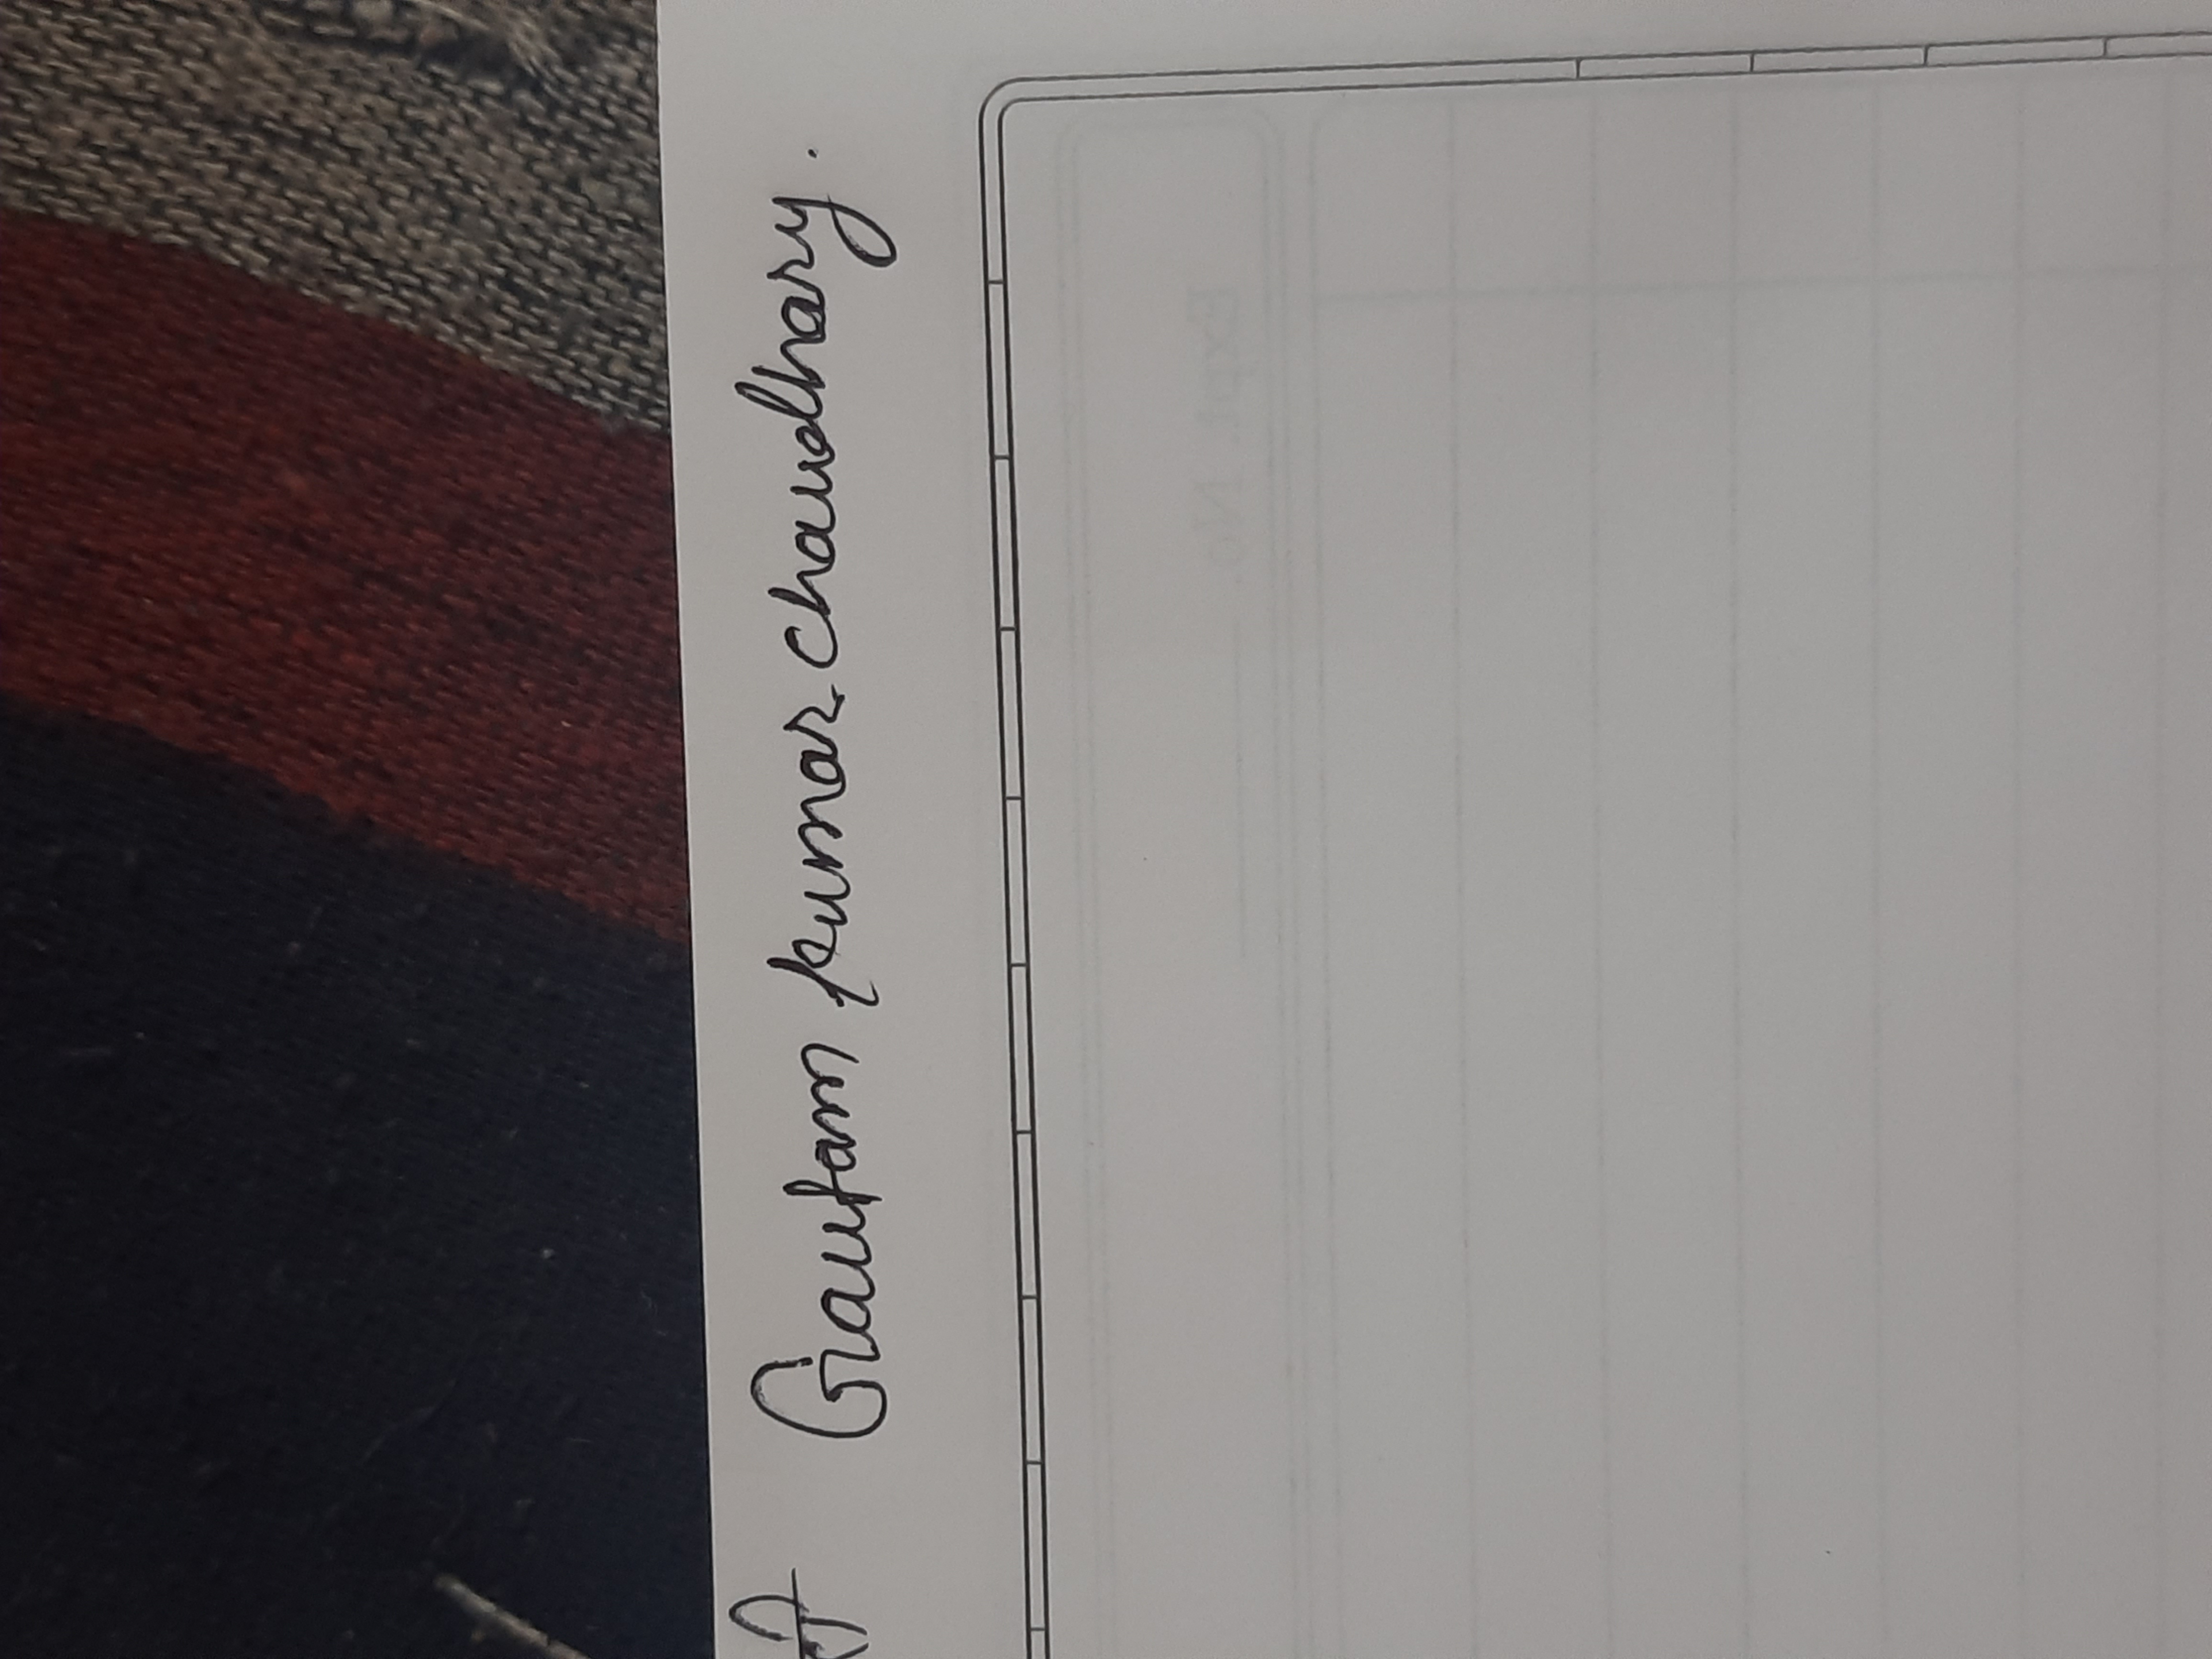 Gautam kumar chaudhary.
Expt. No.